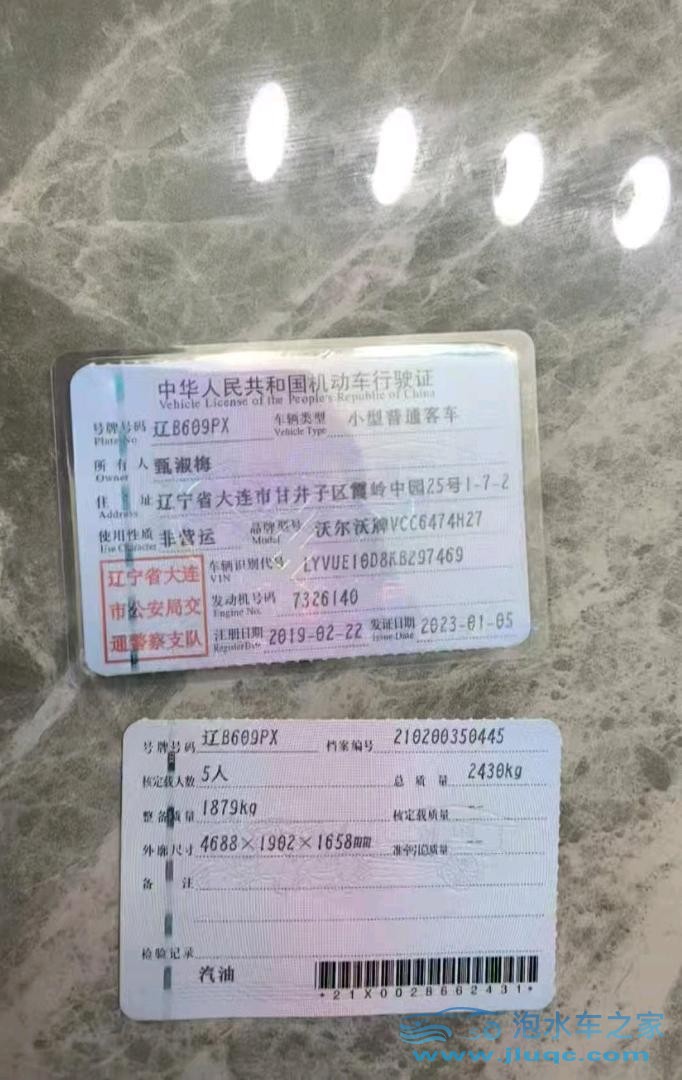 中华人民共和国机动车行驶证
Vehicle License of the People's Republic of China
号牌号码 辽B609PX 车辆类型 小型普通客车
Plate No. Vehicle Type
所有人 甄淑梅
Owner
住址 辽宁省大连市甘井子区霞岭中园25号1-7-2
Address
使用性质 非营运 品牌型号 沃尔沃牌VCC6474H27
Use Character Model
辽宁省大连市公安局交通警察支队
车辆识别代号 LYVUE10D8KB297469
VIN
发动机号码 7326140
Engine No.
注册日期 2019-02-22 发证日期 2023-01-05
Register Date Issue Date
号牌号码 辽B609PX 档案编号 210200350445
核定载人数 5人 总质量 2430kg
整备质量 1879kg 核定载质量 --
外廓尺寸 4688×1902×1658mm 准牵引总质量 --
备注
检验记录
汽油
*21X0028662431*
泡水车之家
www.jluqc.com